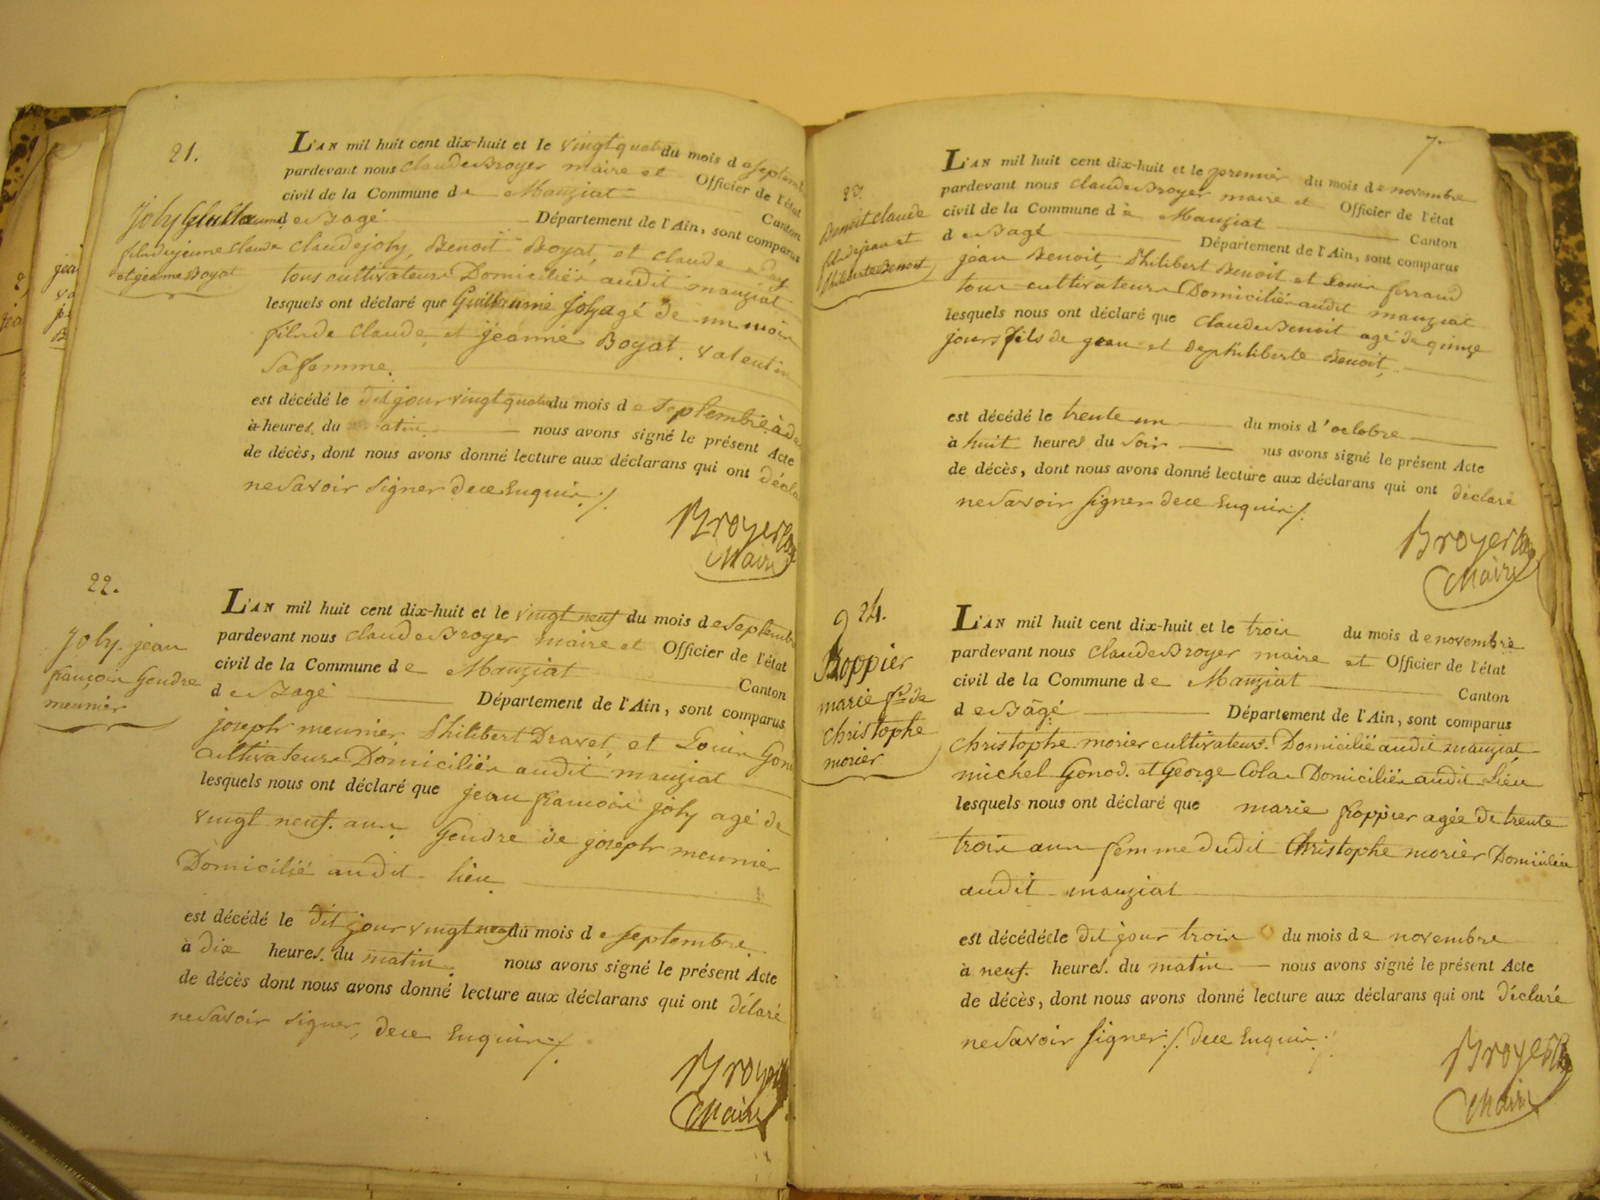 21.
Joly Guillaume
fils de jeune Claude
et jeanne Boyat
L'AN mil huit cent dix-huit et le vingt quatre du mois de septemb
pardevant nous Claude Broyer maire et Officier de l'état
civil de la Commune de Manziat Canton
de Bagé Département de l'Ain, sont comparus
Claude joly, Benoit Boyat, et Claude
tous cultivateurs Domiciliés audit manziat
lesquels ont déclaré que Guillaume Joly agé de un mois
fils de Claude, et jeanne Boyat. valentin
sa femme.
est décédé le dit jour vingt quatre du mois de septembre à
à heures du matin nous avons signé le présent Acte
de décès, dont nous avons donné lecture aux déclarans qui ont décla
ne savoir signer de ce Enquis ./.
Broyer
Maire
22.
Joly jean
françois Gendre
meunier
L'AN mil huit cent dix-huit et le vingt neuf du mois de septembre
pardevant nous Claude Broyer maire et Officier de l'état
civil de la Commune de Manziat Canton
de Bagé Département de l'Ain, sont comparus
joseph meunier, Philibert Dravet, et Louis Gon
cultivateurs Domiciliés audit manziat
lesquels nous ont déclaré que jean françois joly agé de
vingt neuf. ans Gendre de joseph meunier
Domicilié audit lieu
est décédé le dit jour vingt neuf du mois de septembre
à dix heures du matin. nous avons signé le présent Acte
de décès dont nous avons donné lecture aux déclarans qui ont délaré
ne savoir signer, de ce Enquis ./.
Broyer
Maire
7.
23.
Benoit Claude
fils de jean et
Philiberte Benoit
L'AN mil huit cent dix-huit et le premier du mois de novembre
pardevant nous Claude Broyer maire et Officier de l'état
civil de la Commune de Manziat Canton
de Bagé Département de l'Ain, sont comparus
jean Benoit, Philibert Benoit et Louis ferraud
tous cultivateurs Domiciliés audit manziat
lesquels nous ont déclaré que Claude Benoit agé de quinze
jours fils de jean et de philiberte Benoit,
est décédé le trente un du mois d'octobre
à huit heures du soir us avons signé le présent Acte
de décès, dont nous avons donné lecture aux déclarans qui ont déclaré
ne savoir signer de ce Enquis ./.
Broyer
Maire
24.
froppier
marie fe de
Christophe
morier
L'AN mil huit cent dix-huit et le trois du mois de novembre
pardevant nous Claude Broyer maire et Officier de l'état
civil de la Commune de Manziat Canton
de Bâgé Département de l'Ain, sont comparus
Christophe morier cultivateurs. Domicilié audit manziat,
michel Gonod. et George Colas Domiciliés audit Lieu
lesquels nous ont déclaré que marie froppier agée de trente
trois ans femme dudit Christophe morier Domiciliée
audit manziat
est décédéele dit jour trois du mois de novembre
à neuf. heures. du matin nous avons signé le présent Acte
de décès, dont nous avons donné lecture aux déclarans qui ont déclaré
ne savoir signer ./. de ce Enquis ./.
Broyer
Maire